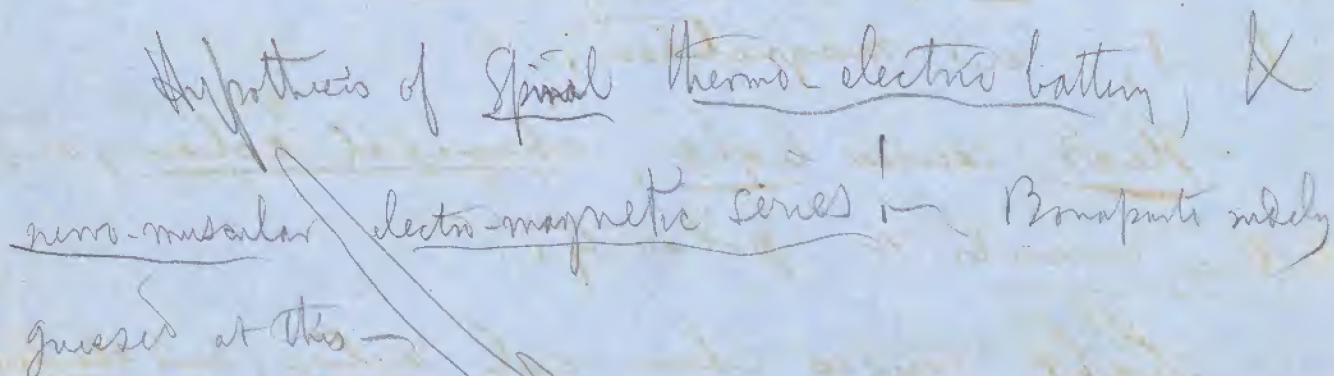 Hypothesis of Spinal thermo-electric battery, &
nervo-muscular electro-magnetic series! — Bonaparte rudely
guessed at this —